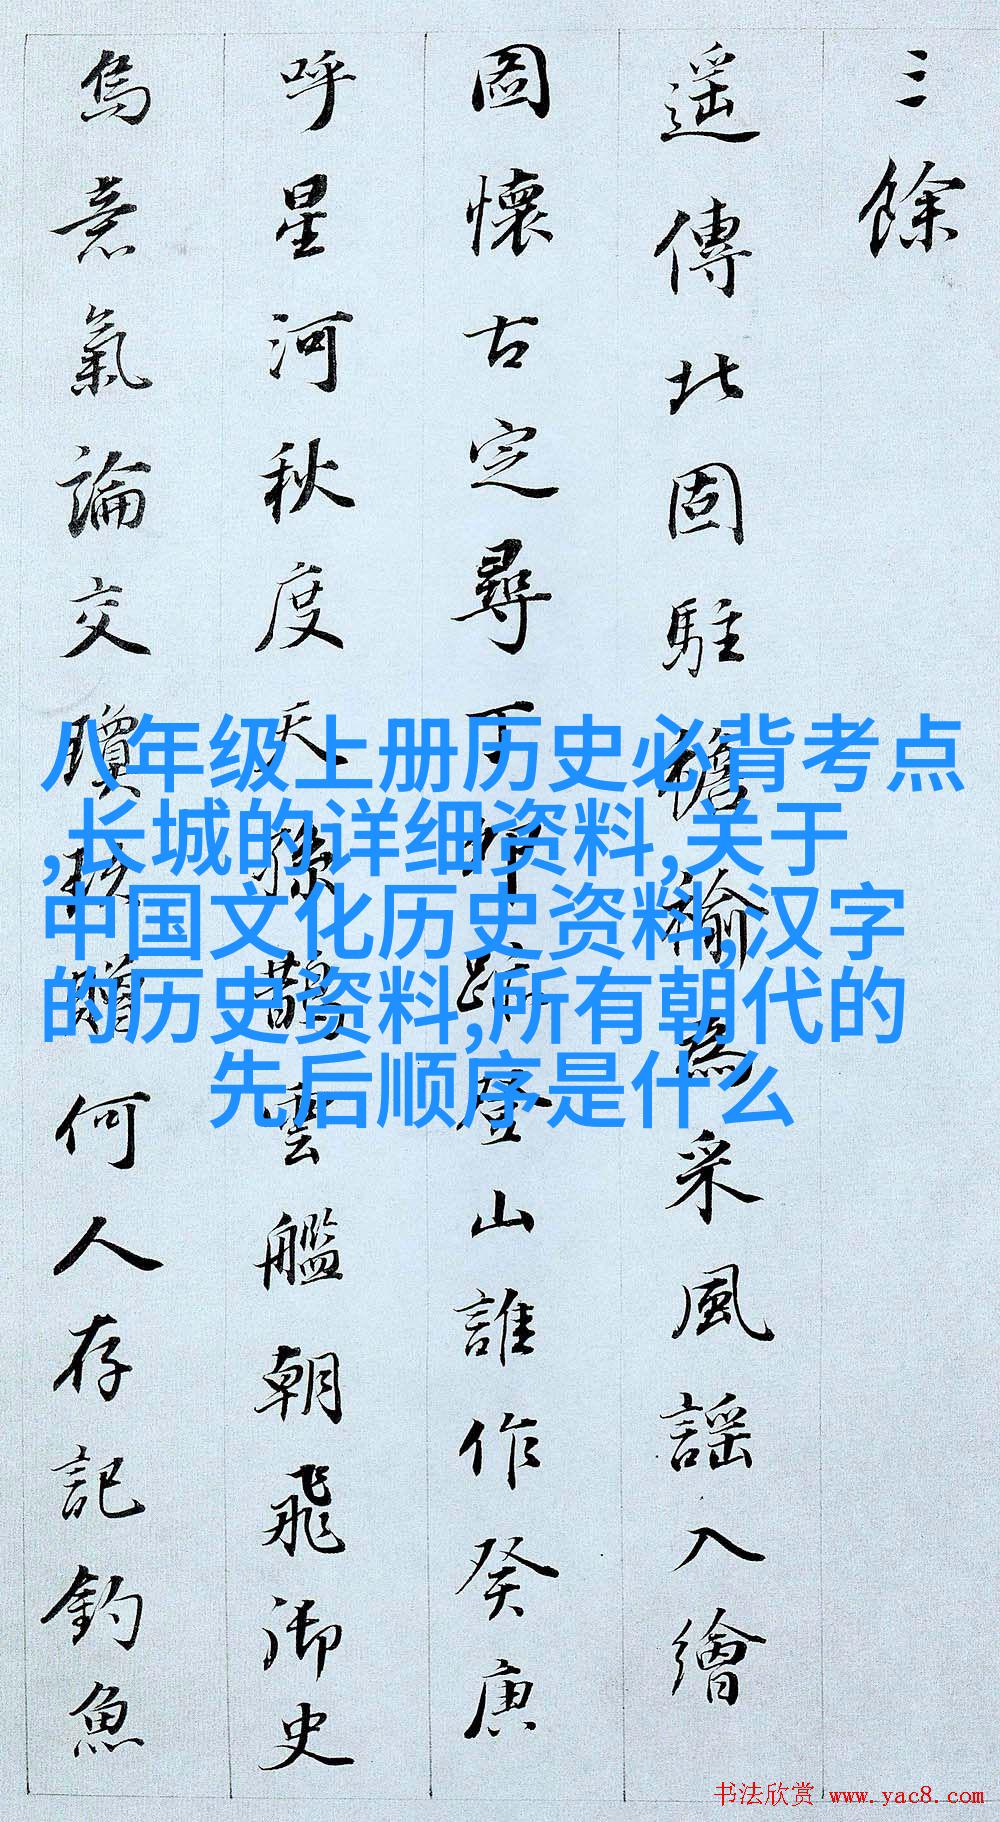 三餘
遥傳北固駐襜褕為采風謡入繪
圖懷古定尋丁卯跡登山誰作癸庚
呼星河秋度天孫鵲雲艦朝飛御史
烏意氣論交
何人存記釣魚
八年级上册历史必背考点
,长城的详细资料,关于
中国文化历史资料,汉字
的历史资料,所有朝代的
先后顺序是什么
书法欣赏 www.yac8.com